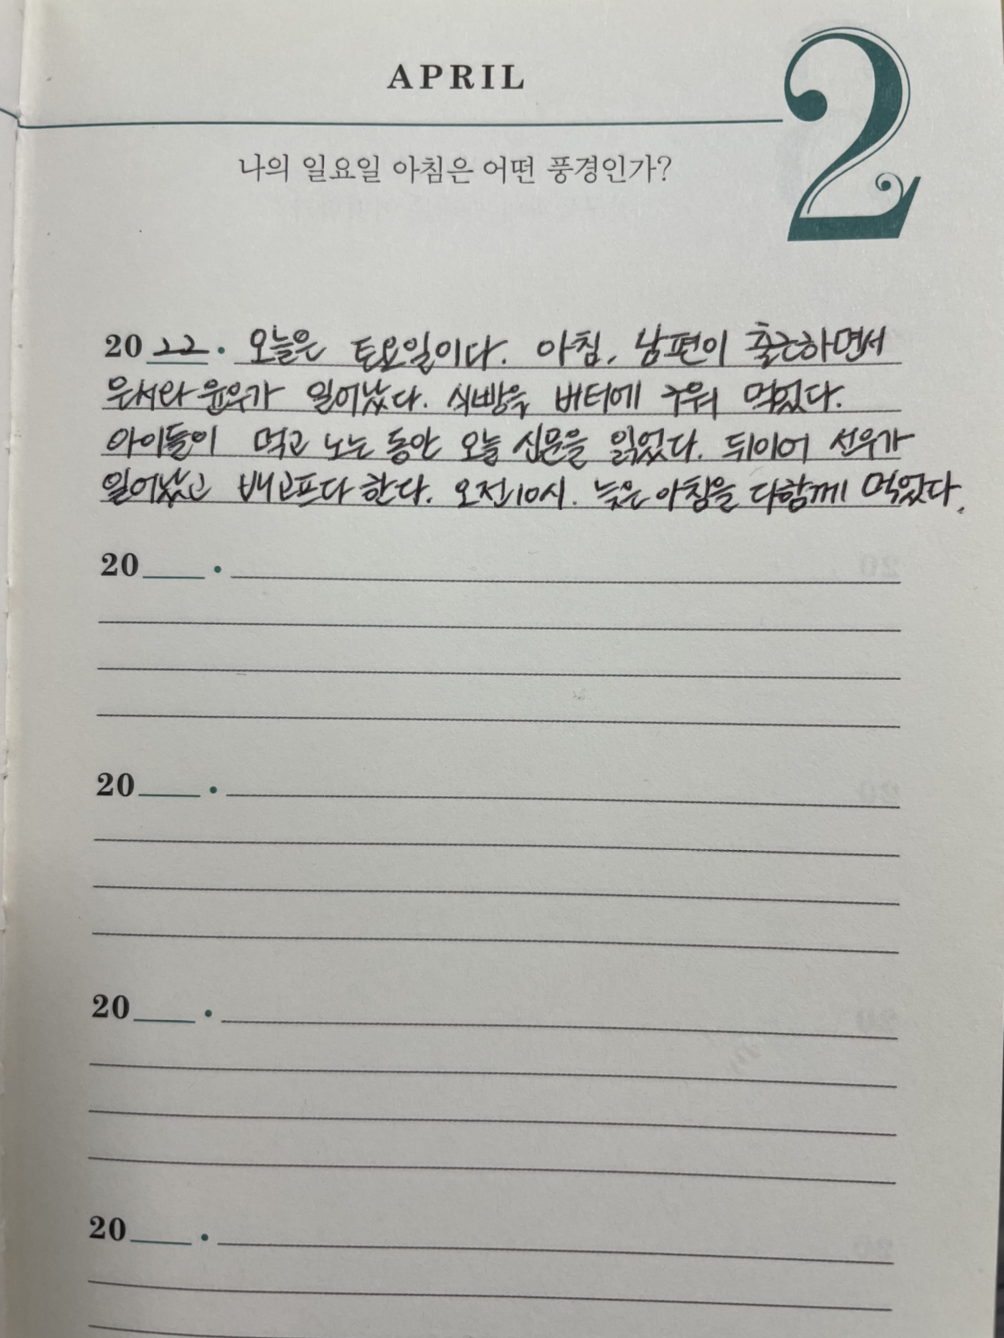 APRIL
2
나의 일요일 아침은 어떤 풍경인가?
2022. 오늘은 토요일이다. 아침, 남편이 출근하면서
은서와 윤우가 일어났다. 식빵을 버터에 구워 먹었다.
아이들이 먹고 노는 동안 오늘 신문을 읽었다. 뒤이어 선우가
일어났고 배고프다 한다. 오전10시. 늦은 아침을 다함께 먹었다.
20
20
20
20